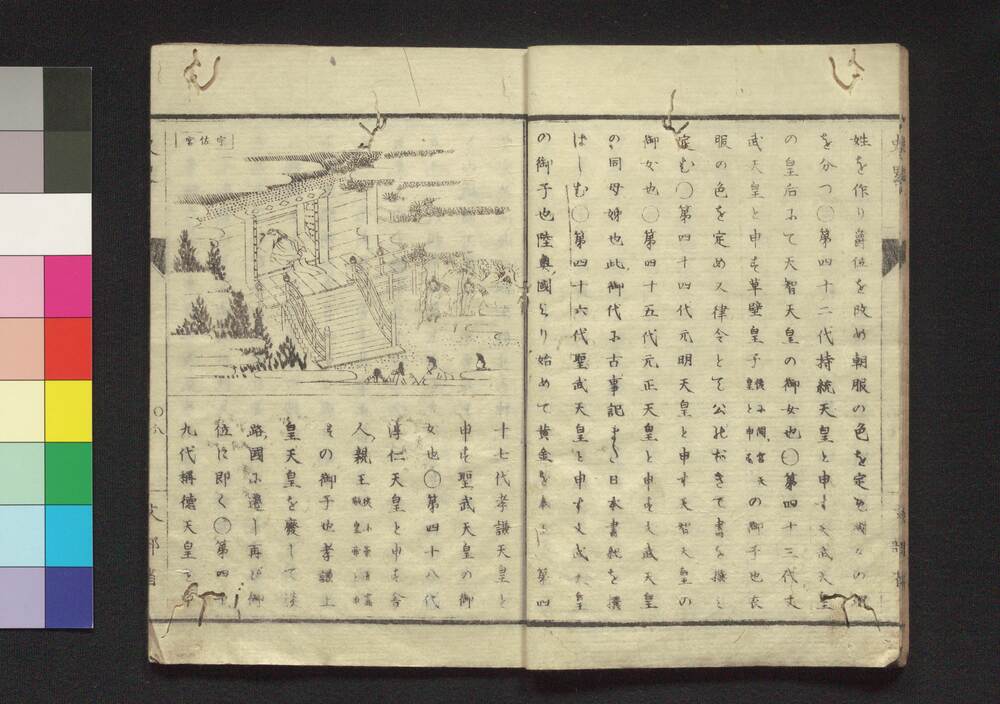 姓を作り爵位を改め朝服の色を定め
を分つ〇第四十二代持統天皇と申す天武天皇
の皇后にて天智天皇の御女也〇第四十三代文
武天皇と申す草壁皇子後に岡宮天皇と申すの御子也衣
服の色を定め又律令とて公のおきて書を撰み
定む〇第四十四代元明天皇と申す天智天皇の
御女也〇第四十五代元正天皇と申す文武天皇
の同母姉也此御代に古事記また日本書紀を撰
ばしむ〇第四十六代聖武天皇と申す文武天皇
の御子也陸奥國より始めて黄金を奉る〇第四
宇佐宮
十七代孝謙天皇と
申す聖武天皇の御
女也〇第四十八代
淳仁天皇と申す舎
人親王
その御子也孝謙上
皇天皇を廢して淡
路國に遷し再び御
位に即く〇第四十
九代稱德天皇と申
〇八
文部省